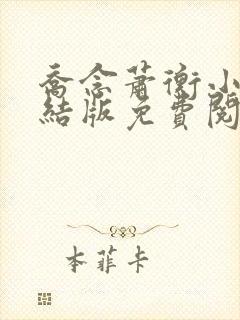 喬念蕭衡小
結版免費閱
本菲卡